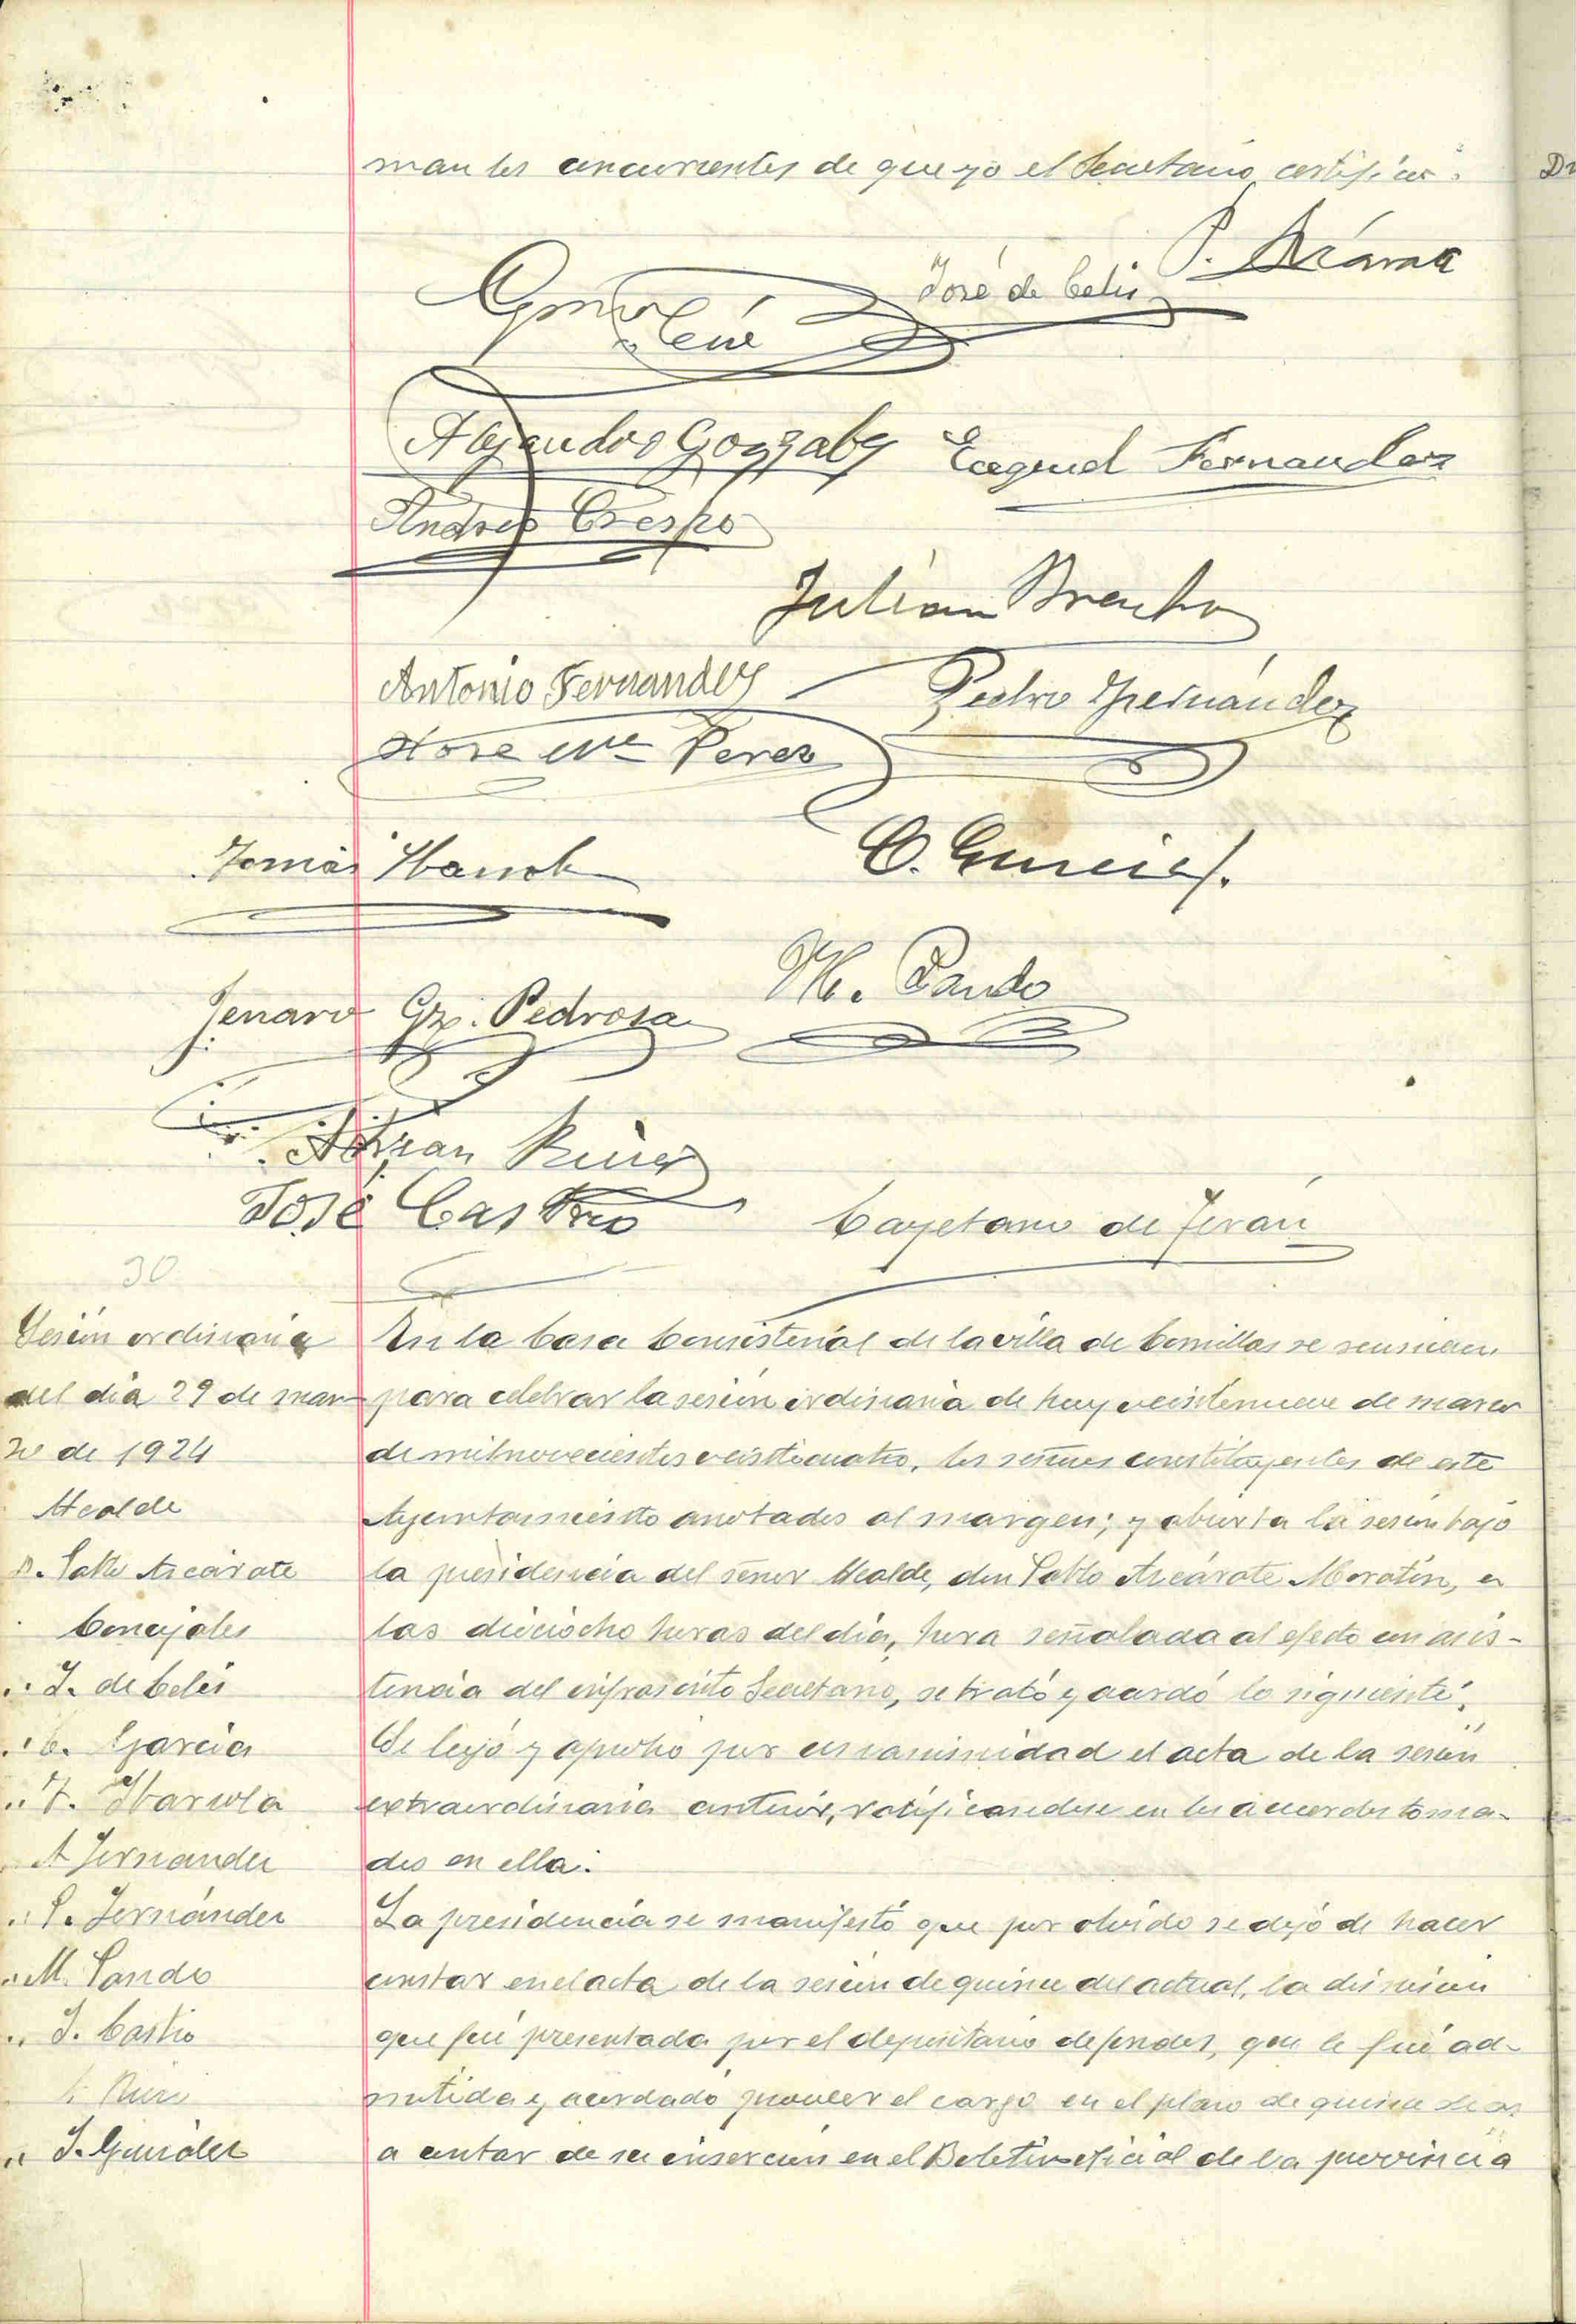 man los concurrentes de que yo el Secretario certifico.
José de Celis
P. Azcárate
Alejandro González
Ezequiel Fernandez
Andres Crespo
Julian Bracho
Antonio Fernandez
Pedro Fernández
Jose Mª Perez
Tomás Ibarrola
C. García
M. Pando
Jenaro Gz. Pedrosa
Adrian Ruiz
José Castro
Cayetano de Terán
30
Sesión ordinaria
del dia 29 de mar
zo de 1924
Alcalde
D. Pablo Azcárate
Concejales
" J. de Celis
" C. García
" T. Ibarrola
A Fernandez
" P. Fernández
" M. Pando
" J. Castro
Ruiz
" J. González
En la Casa Consistorial de la villa de Comillas se reunieron
para celebrar la sesión ordinaria de hoy veintinueve de marzo
de mil novecientos veinticuatro, los señores constituyentes de este
Ayuntamiento anotados al margen; y abierta la sesión bajo
la presidencia del señor Alcalde, don Pablo Azcárate Moratín, a
las dieciocho horas del día, hora señalada al efecto con asis-
tencia del infrascrito Secretario, se trató y acordó lo siguiente.
Se leyó y aprobó por unanimidad el acta de la sesión
extraordinaria anterior, ratificandose en los acuerdos toma-
dos en ella.
La presidencia se manifestó que por olvido se dejó de hacer
constar en el acta de la sesión de quince del actual, la dimisión
que fué presentada por el depositario de fondos, que le fué ad-
mitida y acordado proveer el cargo en el plazo de quince dias
a contar de su inserción en el Boletin oficial de la provincia